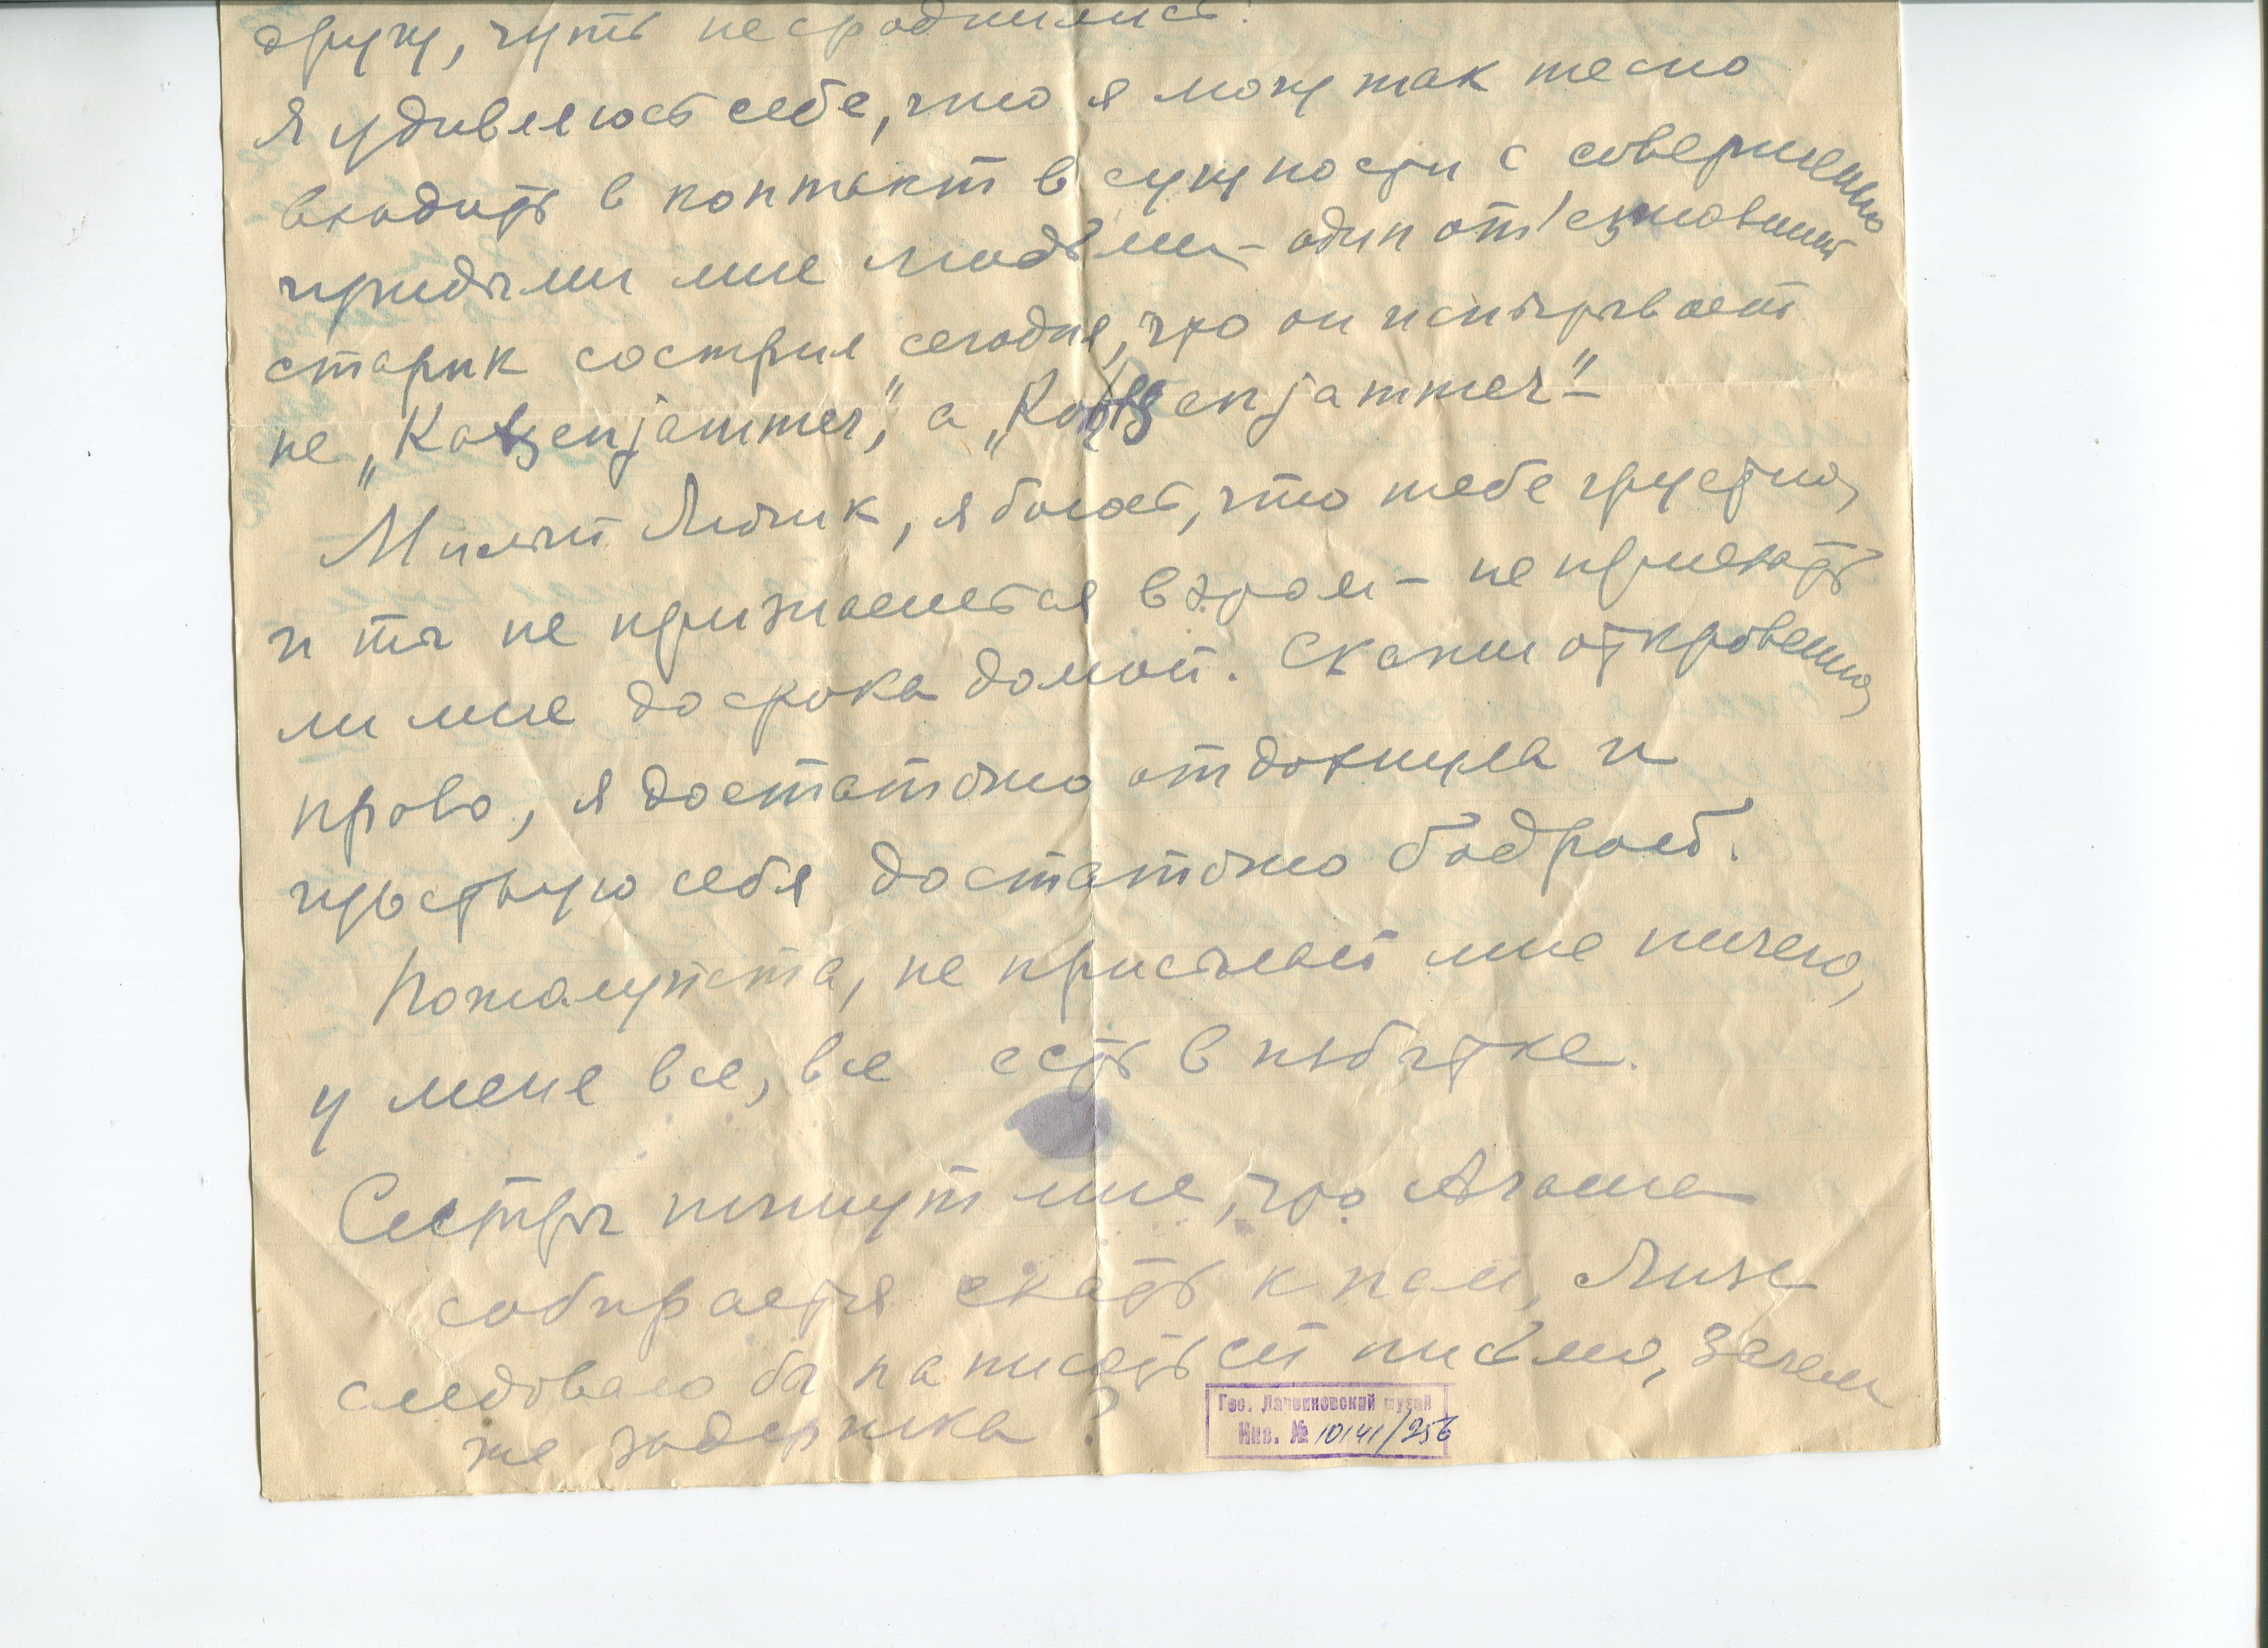 другу, чуть не сроднились!
Я удивляюсь себе, что я могу так тесно
входить в контакт в сущности с совершенно
чуждыми мне людьми – один отъезжающий
старик сострил сегодня, что он испытывает
не „Katzenjammer", а „Kotzenjammer" –
Милый Люсик, я боюсь, что тебе грустно,
и ты не признаешься в этом – не приехать
ли мне до срока домой. Скажи откровенно,
право, я достаточно отдохнула и
чувствую себя достаточно бодрой.
Пожалуйста, не присылай мне ничего,
у меня все, все есть в избытке.
Сестры пишут мне, что Агаша
собирается ехать к нам, Лизе
следовало бы написать ей письмо, зачем
же задержка?
Гос. Дарвиновский музей
Инв. № 10141/256